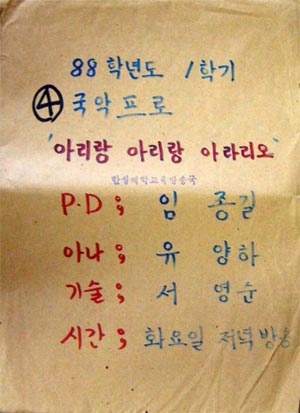 88학년도 1학기
④ 국악프로
'아리랑 아리랑 아라리오'
한성대학교교육방송국
P.D ; 임 종길
아나 ; 유 양하
기술 ; 서 영순
시간 ; 화요일 저녁방송